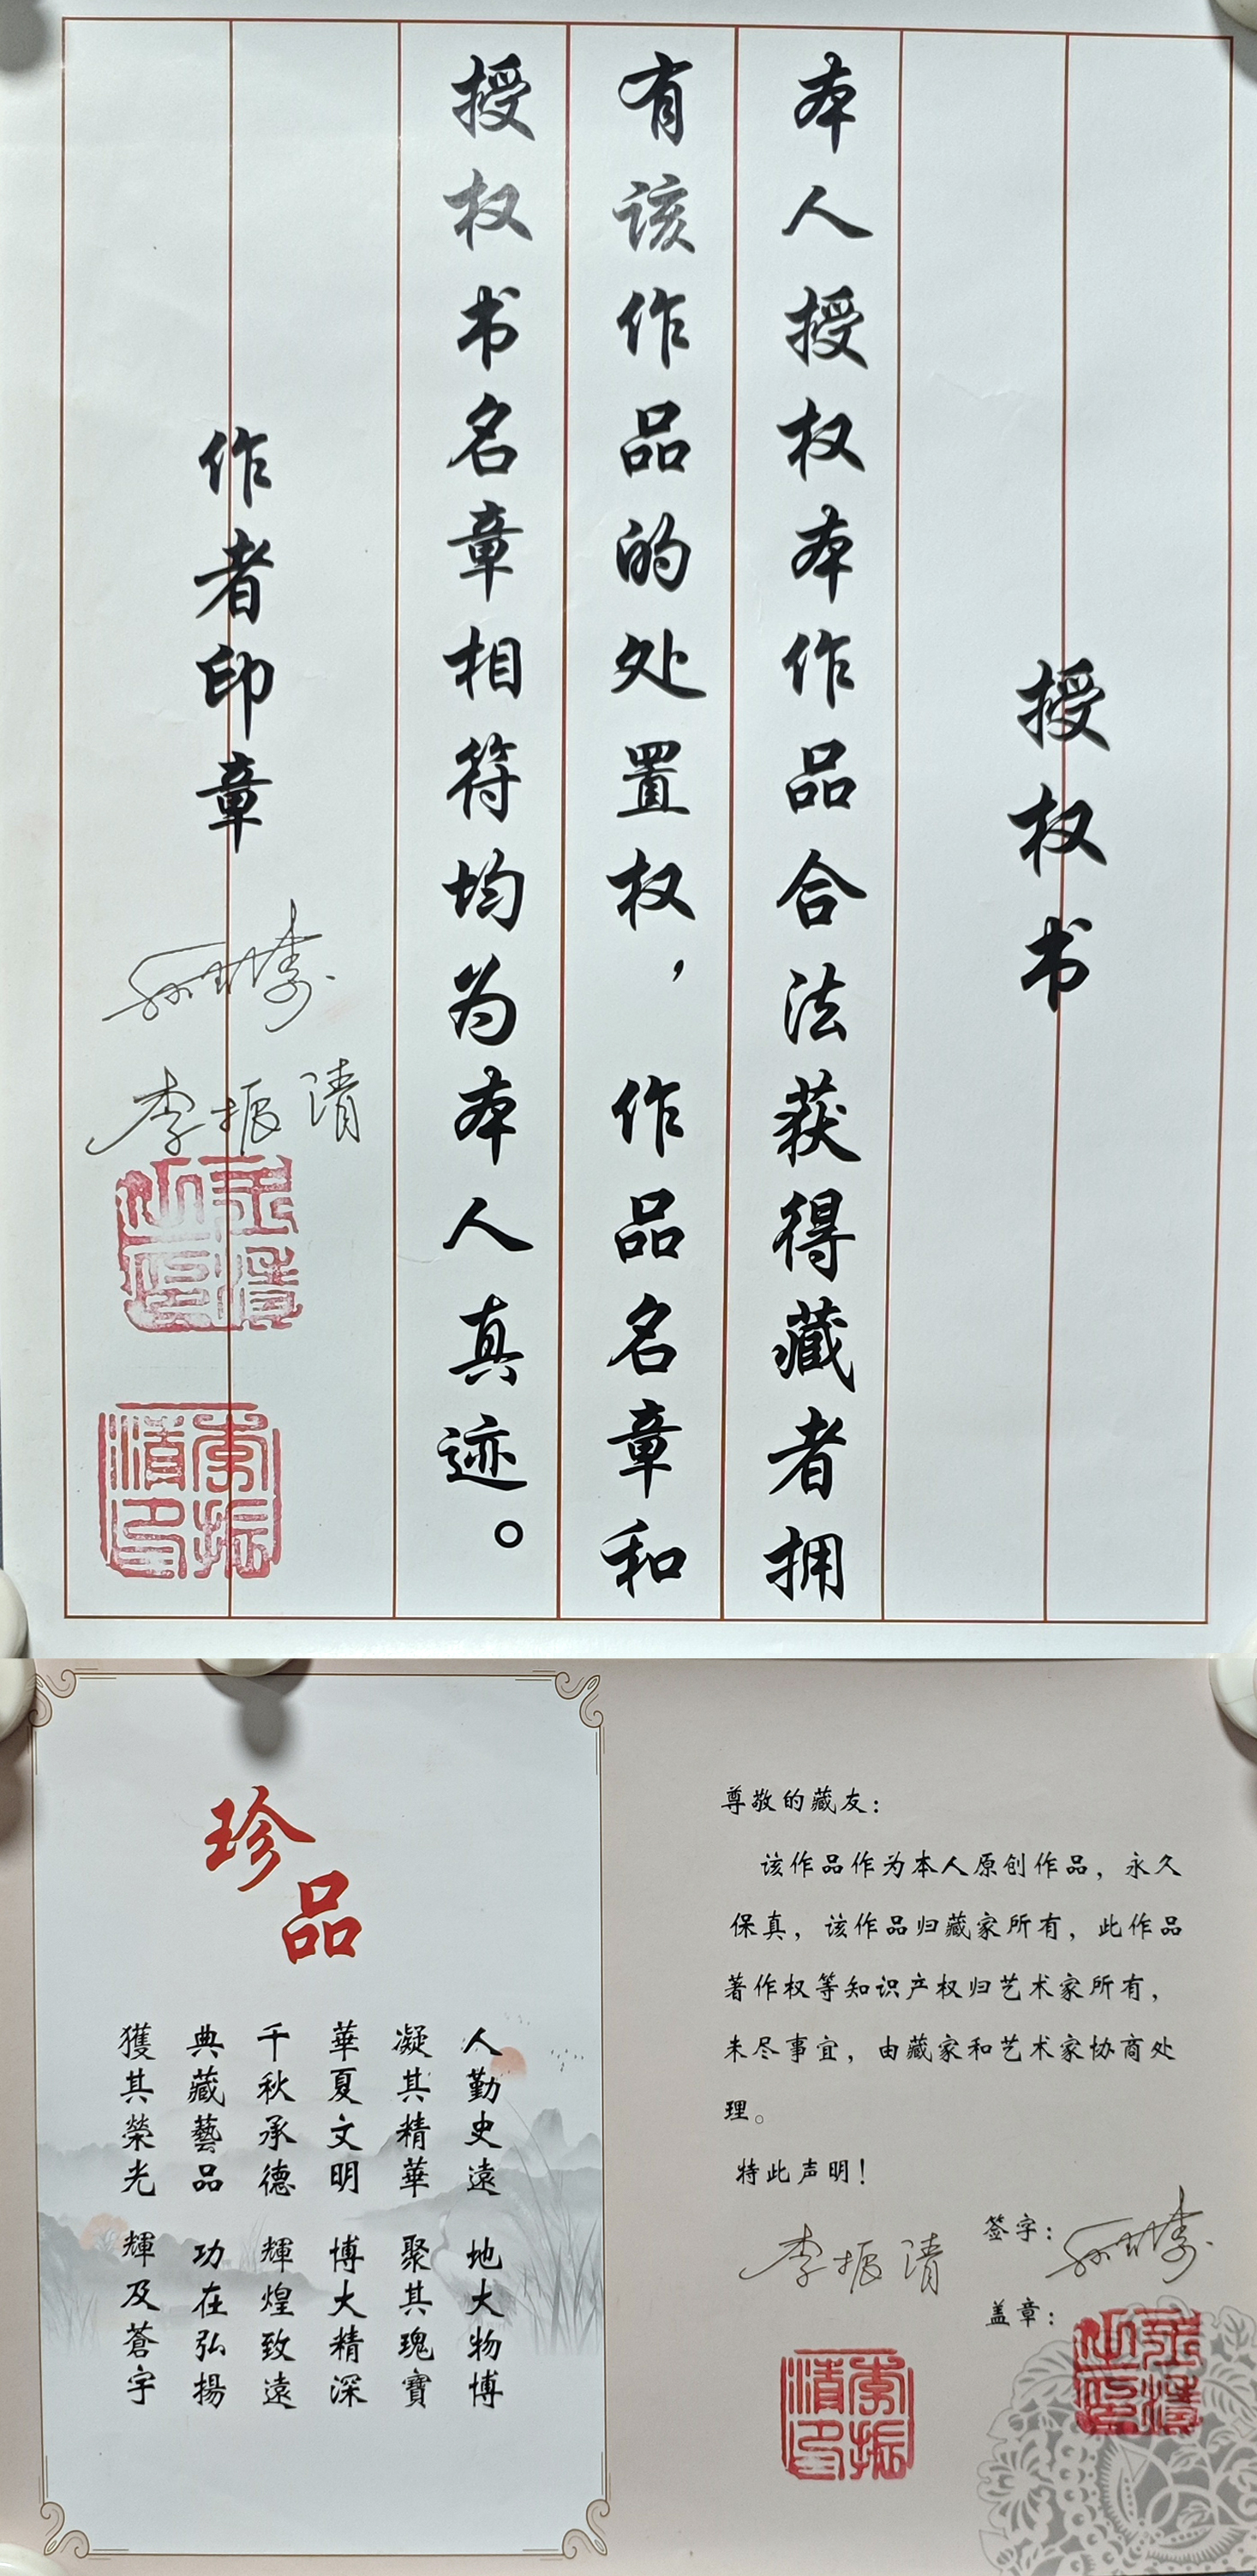 授权书
本人授权本作品合法获得藏者拥
有该作品的处置权，作品名章和
授权书名章相符均为本人真迹。
作者印章
李振清
李振清印
珍品
人勤史遠 地大物博
凝其精華 聚其瑰寶
華夏文明 博大精深
千秋承德 輝煌致遠
典藏藝品 功在弘揚
獲其榮光 輝及蒼宇
尊敬的藏友：
该作品作为本人原创作品，永久
保真，该作品归藏家所有，此作品
著作权等知识产权归艺术家所有，
未尽事宜，由藏家和艺术家协商处
理。
特此声明！
签字：
李振清
盖章：
李振清印